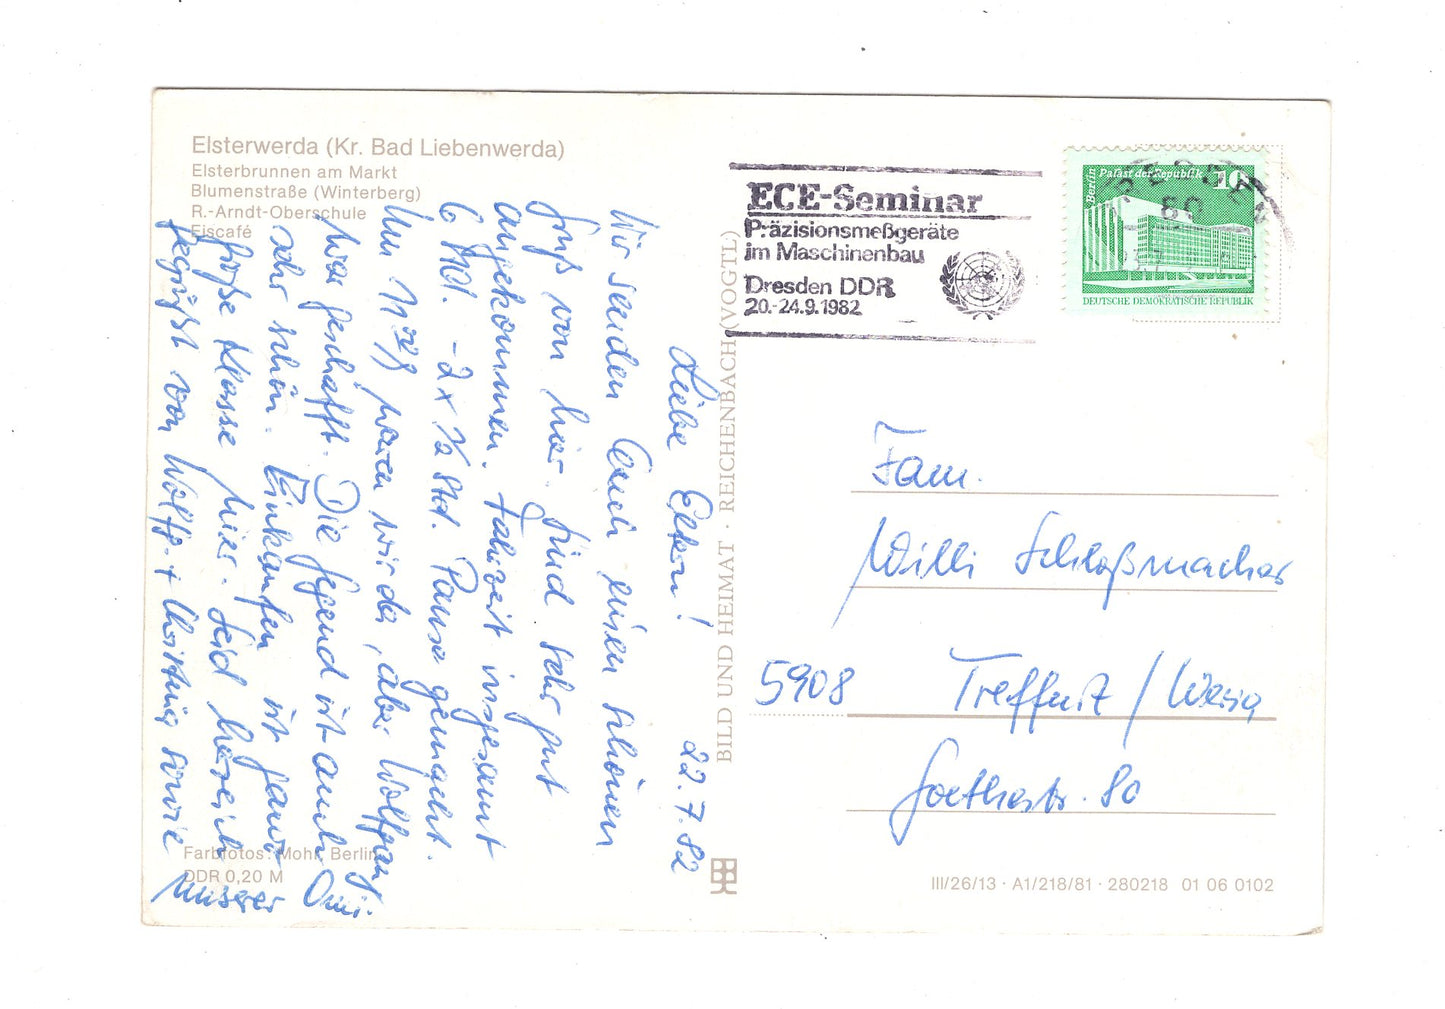 Elsterwerda (Kr. Bad Liebenwerda)
Elsterbrunnen am Markt
Blumenstraße (Winterberg)
R.-Arndt-Oberschule
Eiscafé
22.7.82
Liebe Eltern!
Wir senden Euch einen schönen
Gruß von hier. Sind sehr gut
angekommen. Fahrzeit insgesamt
6 Std. - 2 x ½ Std. Pause gemacht.
Um 11 waren wir da, aber Wolfgang
war geschafft. Die Gegend ist auch
sehr schön. Einkaufen ist ganz
große Klasse hier. Seid herzlich
gegrüßt von Wolfg. + Christina sowie
unserer Omi.
Farbfotos: Mohr, Berlin
DDR 0,20 M
BILD UND HEIMAT · REICHENBACH (VOGTL)
ECE-Seminar
Präzisionsmeßgeräte
im Maschinenbau
Dresden DDR
20.-24.9.1982
Berlin Palast der Republik 10
DEUTSCHE DEMOKRATISCHE REPUBLIK
Fam.
Willi Schloßmacher
5908 Treffurt / Werra
Goethestr. 80
III/26/13 · A1/218/81 · 280218 01 06 0102